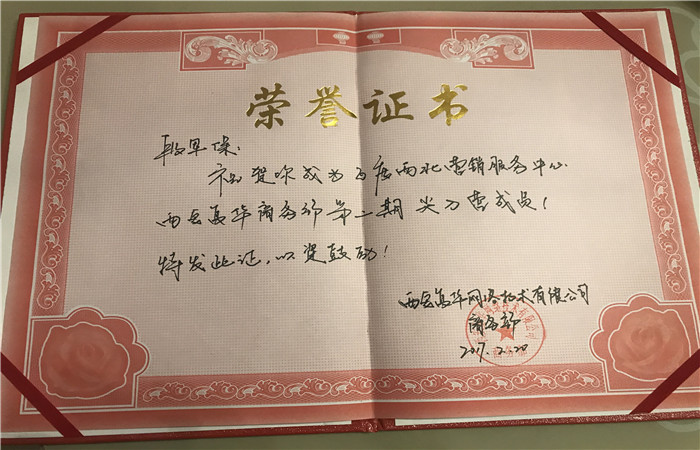 荣誉证书
段早保:
祝贺你成为百度西北营销服务中心
西安嘉华商务部第二期尖刀营成员!
特发此证,以资鼓励!
西安嘉华网络技术有限公司
商务部
2017.2.20